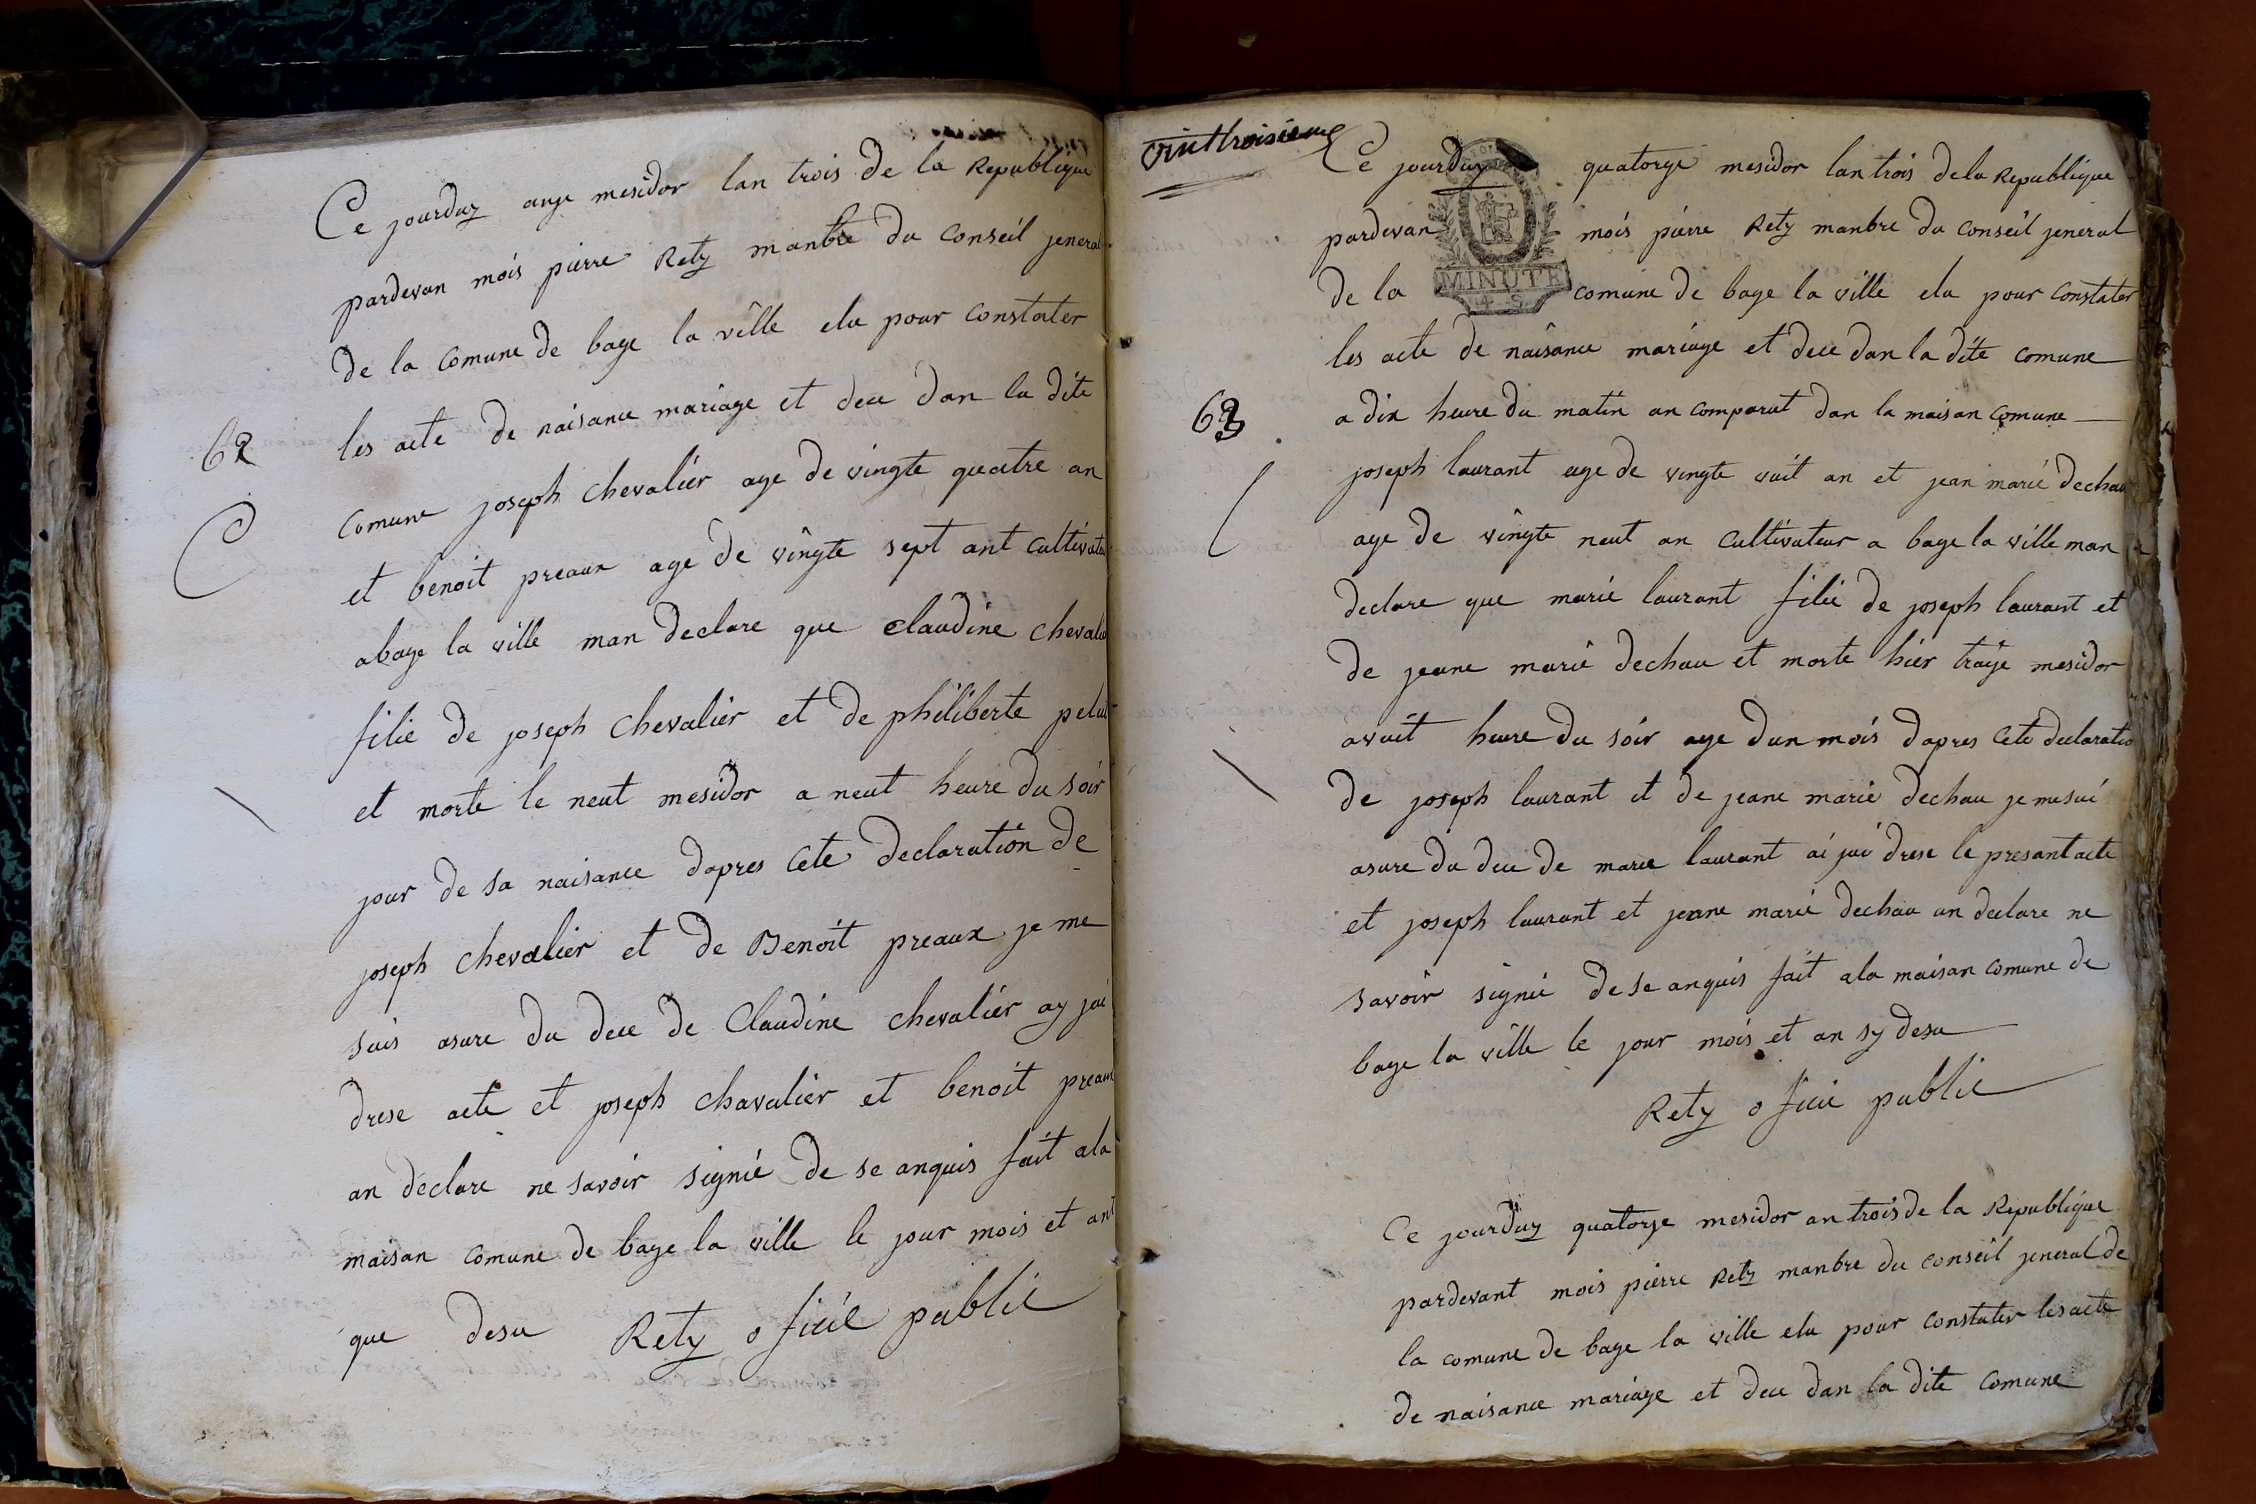 Ce jourduy onze mesidor lan trois de la Republique
pardevan mois pierre Rety manbre du conseil jeneral
de la comune de bage la ville elu pour constater
62
les acte de naisance mariage et dece dan la dite
comune joseph chevalier age de vingte quatre an
et benoit preaux age de vingte sept ant cultivateu
abage la ville man declare que claudine chevalie
filie de joseph chevalier et de philiberte pelu
et morte le neut mesidor a neut heure du soir
jour de sa naisance dapres cete declaration de
joseph chevalier et de Benoit preaux je me
suis asure du dece de Claudine chevalier ay jai
drese acte et joseph chavalier et benoit preaux
an declare ne savoir signié de se anquis fait ala
maisan comune de bage la ville le jour mois et ant
que desu Rety oficié public
vinttroisieme
Ce jourduy quatorze mesidor lan trois dela Republique
pardevan mois pierre Rety manbre du conseil jeneral
MINUTE
4. S.
de la comune de bage la ville elu pour constater
les acte de naisance mariage et dece dan la dite comune
63
a dix heure du matin an comparut dan la maison comune
joseph laurant age de vingte vuit an et jean marie dechau
age de vingte neut an cultivateur a bage la ville man
declare que marie laurant filie de joseph laurant et
de jeane marie dechau et morte hier traize mesidor
avuit heure du soir age dun mois dapres cete declaratio
de joseph laurant et de jeane marie dechau je mesui
asure du dece de marie laurant ai jai drese le presant acte
et joseph laurant et jeane marie dechau an declare ne
savoir signié de se anquis fait ala maisan comune de
bage la ville le jour mois et an sy desu
Rety oficié public
Ce jourduy quatorze mesidor an trois de la Republique
pardevant mois pierre Rety manbre du conseil jeneral de
la comune de bage la ville elu pour constater les acte
de naisance mariage et dece dan la dite comune